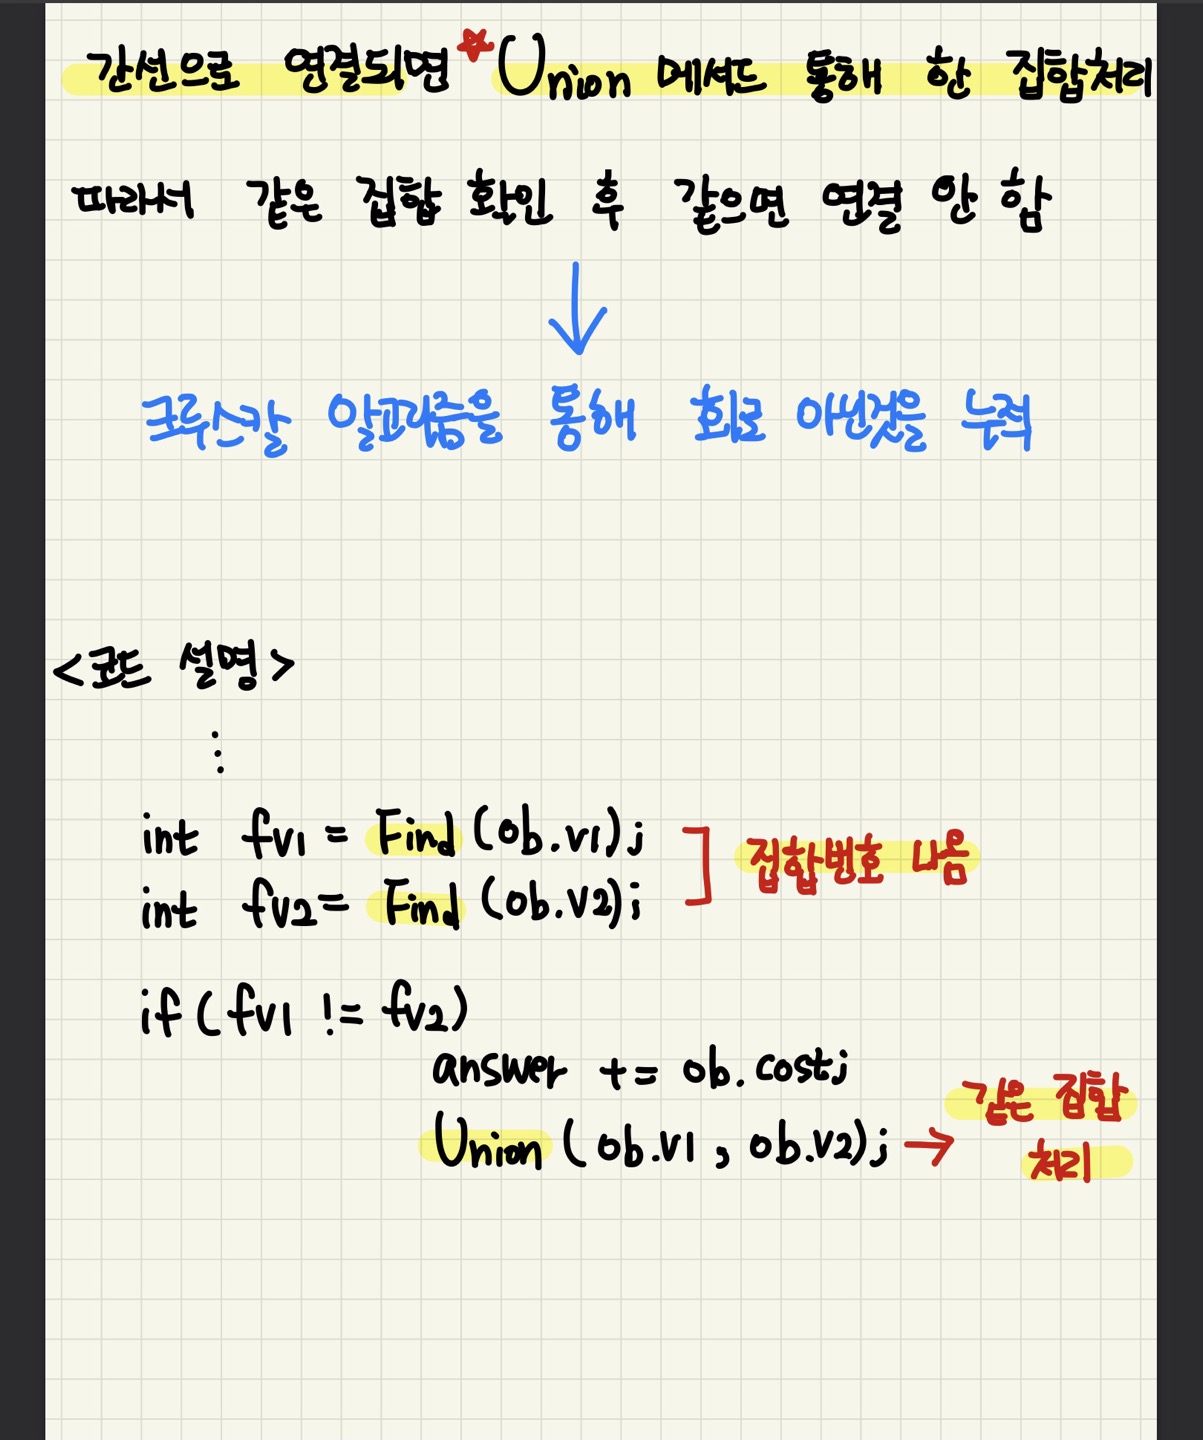 간선으로 연결되면 ★Union 메서드 통해 한 집합처리
따라서 같은 집합 확인 후 같으면 연결 안 함
↓
크루스칼 알고리즘을 통해 회로 아닌것을 누적
<코드 설명>
⋮
int fv1 = Find(ob.v1); ] 집합번호 나옴
int fv2 = Find(ob.v2);
if(fv1 != fv2)
answer += ob.cost;
Union(ob.v1, ob.v2); → 같은 집합
처리